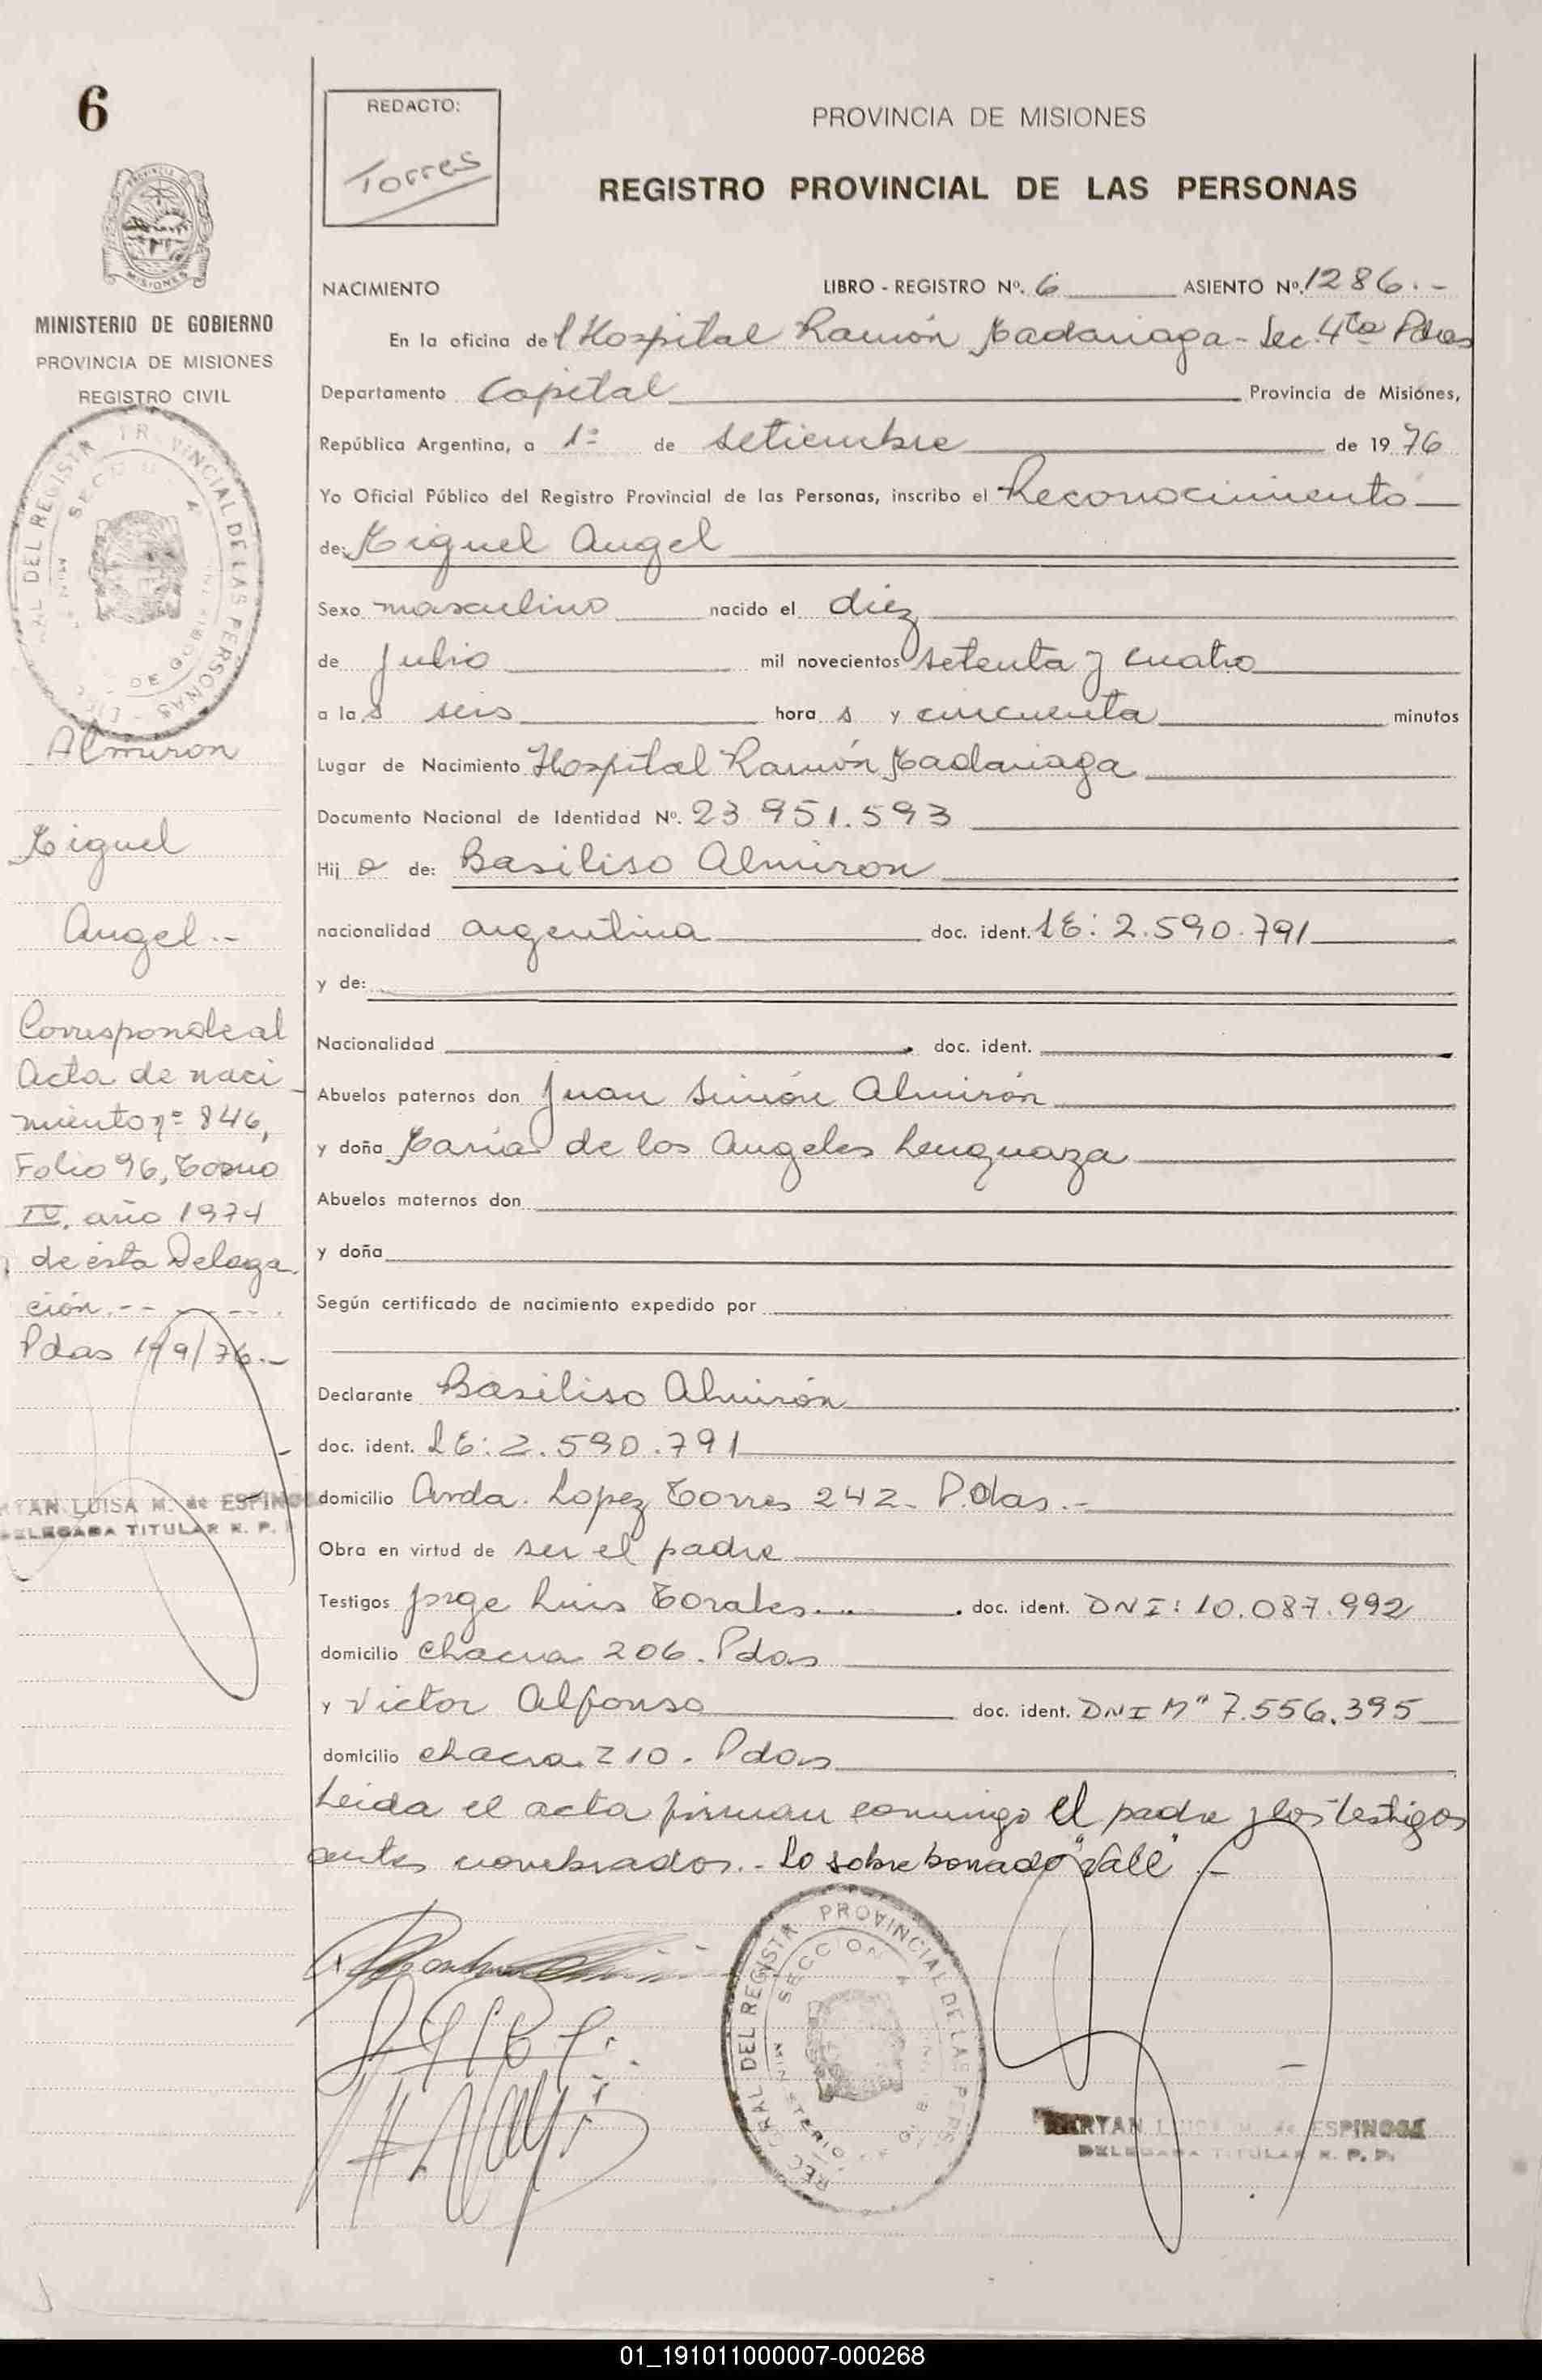 6
REDACTO:
Torres
PROVINCIA DE MISIONES
REGISTRO PROVINCIAL DE LAS PERSONAS
MISIONES
MINISTERIO DE GOBIERNO
PROVINCIA DE MISIONES
REGISTRO CIVIL
Almiron
Miguel
Angel.-
Corresponde al
Acta de naci
miento nº 846,
Folio 96, Tomo
IV, año 1974
de ésta Delega
ción.- - - - - -
Pdas 1º/9/76.-
LUISA M. de ESPINOS
DELEGADA TITULAR R. P.
NACIMIENTO LIBRO - REGISTRO Nº. 6 ASIENTO Nº. 1286.-
En la oficina del Hospital Ramón Madariaga - Sec. 4ta Pdas
Departamento Capital Provincia de Misiones,
República Argentina, a 1º de setiembre de 1976
Yo Oficial Público del Registro Provincial de las Personas, inscribo el Reconocimiento
de: Miguel Angel
Sexo masculino nacido el diez
de Julio mil novecientos setenta y cuatro
a las seis horas y cincuenta minutos
Lugar de Nacimiento Hospital Ramón Madariaga
Documento Nacional de Identidad Nº. 23.951.593
Hijo de: Basiliso Almiron
nacionalidad argentina doc. ident. LE: 2.590.791
y de:
Nacionalidad doc. ident.
Abuelos paternos don Juan Simón Almirón
y doña Maria de los Angeles Lenguaza
Abuelos maternos don
y doña
Según certificado de nacimiento expedido por
Declarante Basiliso Almirón
doc. ident. LE: 2.590.791
domicilio Avda. Lopez Torres 242 - Pdas.-
Obra en virtud de ser el padre
Testigos Jorge Luis Morales doc. ident. DNI: 10.087.992
domicilio chacra 206. Pdas
y Victor Alfonso doc. ident. DNI Mº 7.556.395
domicilio chacra 210. Pdas
Leida el acta firman conmigo el padre y los testigos
antes nombrados.- Lo sobreborrado "Vale".-
PROVINCIAL DE LAS
DEL REGISTR
SECCION
ESPINOSA
DELEGADA TITULAR R. P. P.
01_191011000007-000268